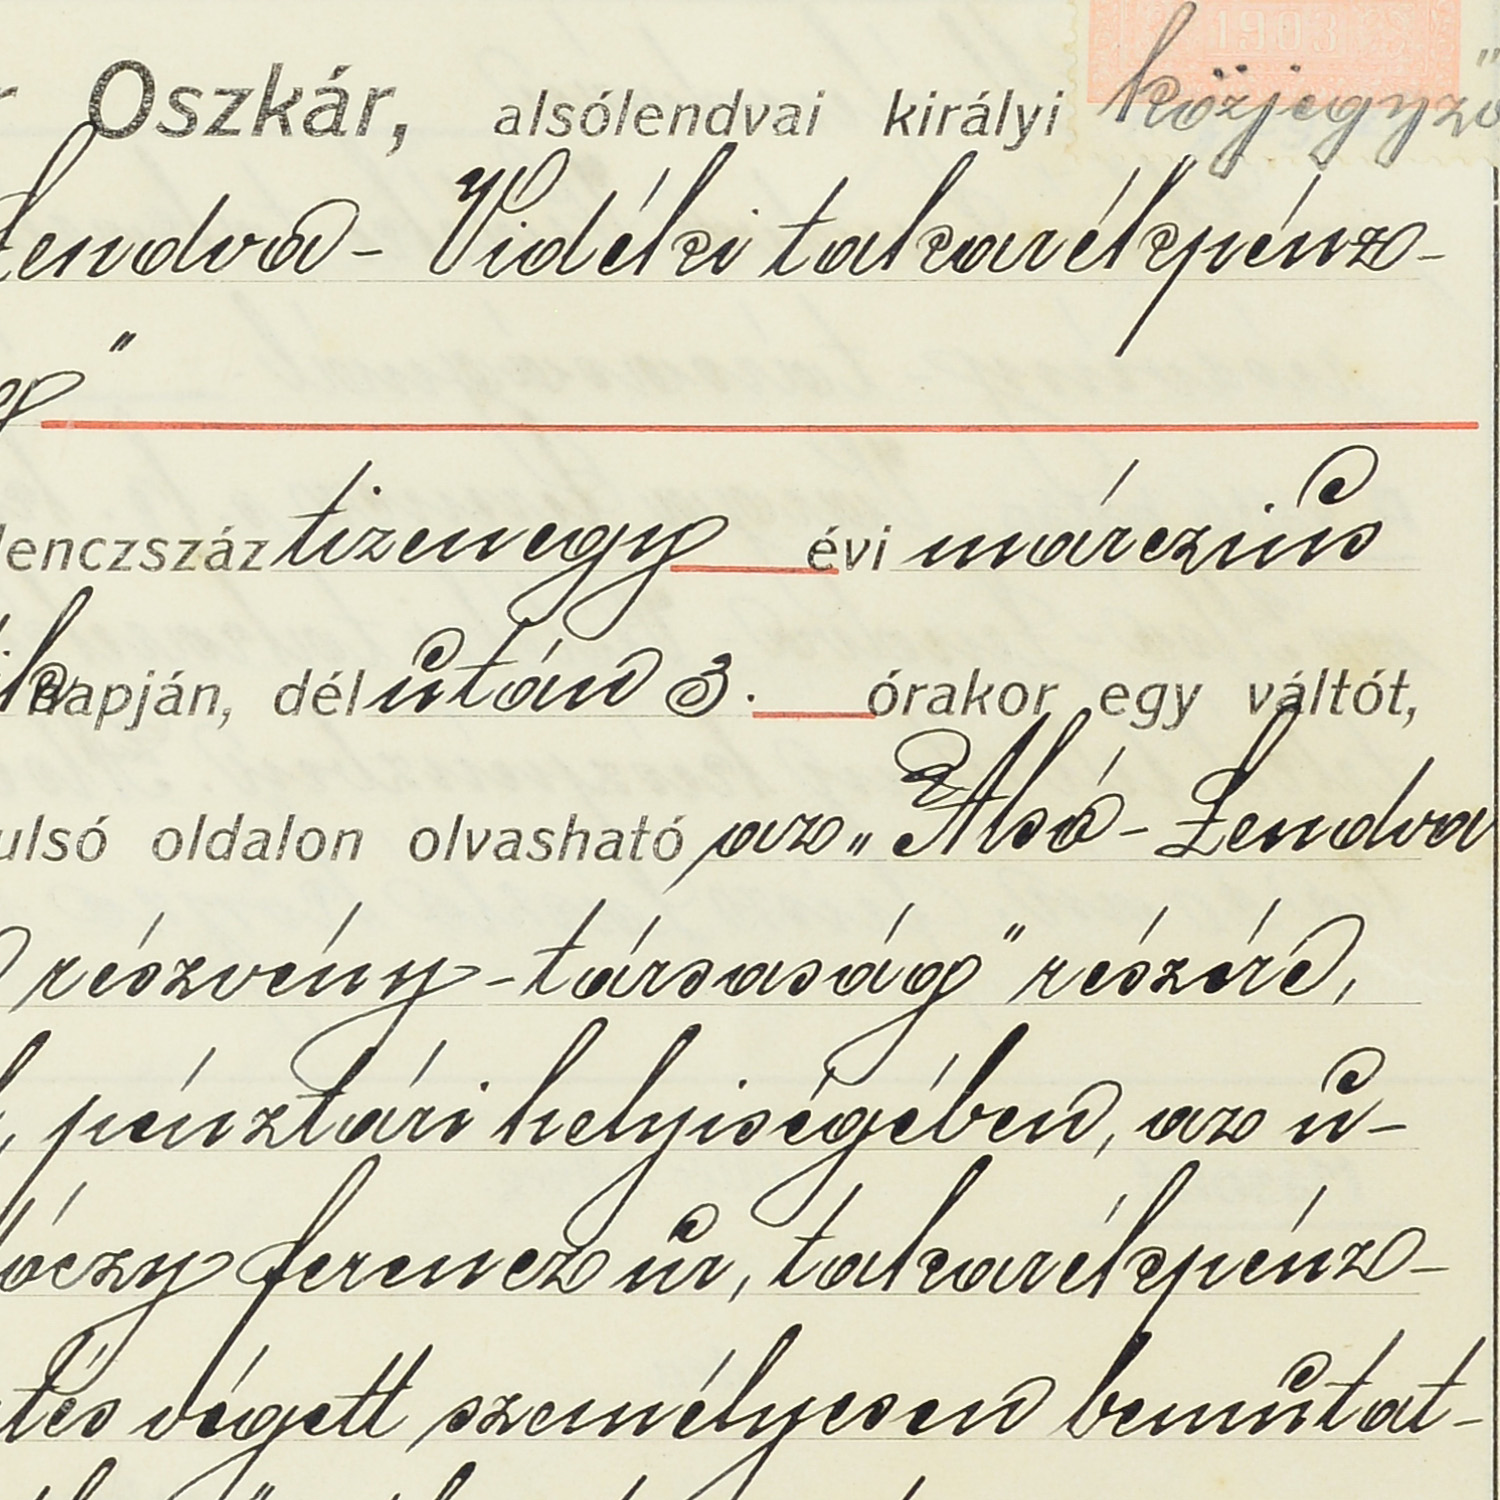 1903
Oszkár, alsólendvai királyi közjegyző
Lendva - Vidéki takarékpénz-
"
lenczszáz tizenegy évi márczius
ik napján, dél után 3. órakor egy váltót,
ulsó oldalon olvasható az „Alsó-Lendva
részvény-társaság" részére,
, pénztári helyiségében, az u-
óczy Ferencz úr, takarékpénz-
tés végett személyesen bemutat-